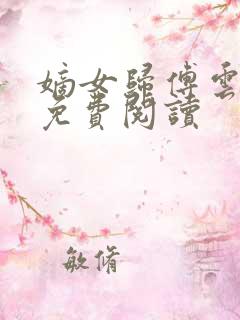 嫡女歸傅雲
免費閱讀
敏脩